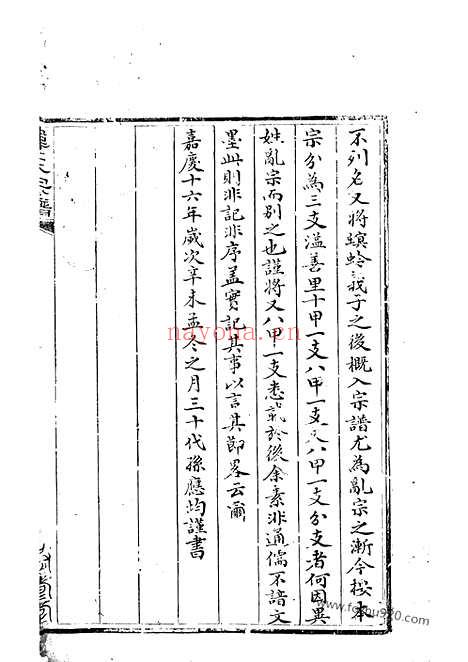 不列名又將螟蛉義子之後概入宗譜尤為亂宗之漸今按本
宗分為三支溫善里十甲一支八甲一支又八甲一支分支者何因異
姓亂宗而別之也謹將又八甲一支悉載於後余素非通儒不諳文
墨此則非記非序蓋實記其事以言其節畧云爾
嘉慶十六年歲次辛未孟冬之月三十代孫應均謹書
nayona.cn
www.foshu920.com